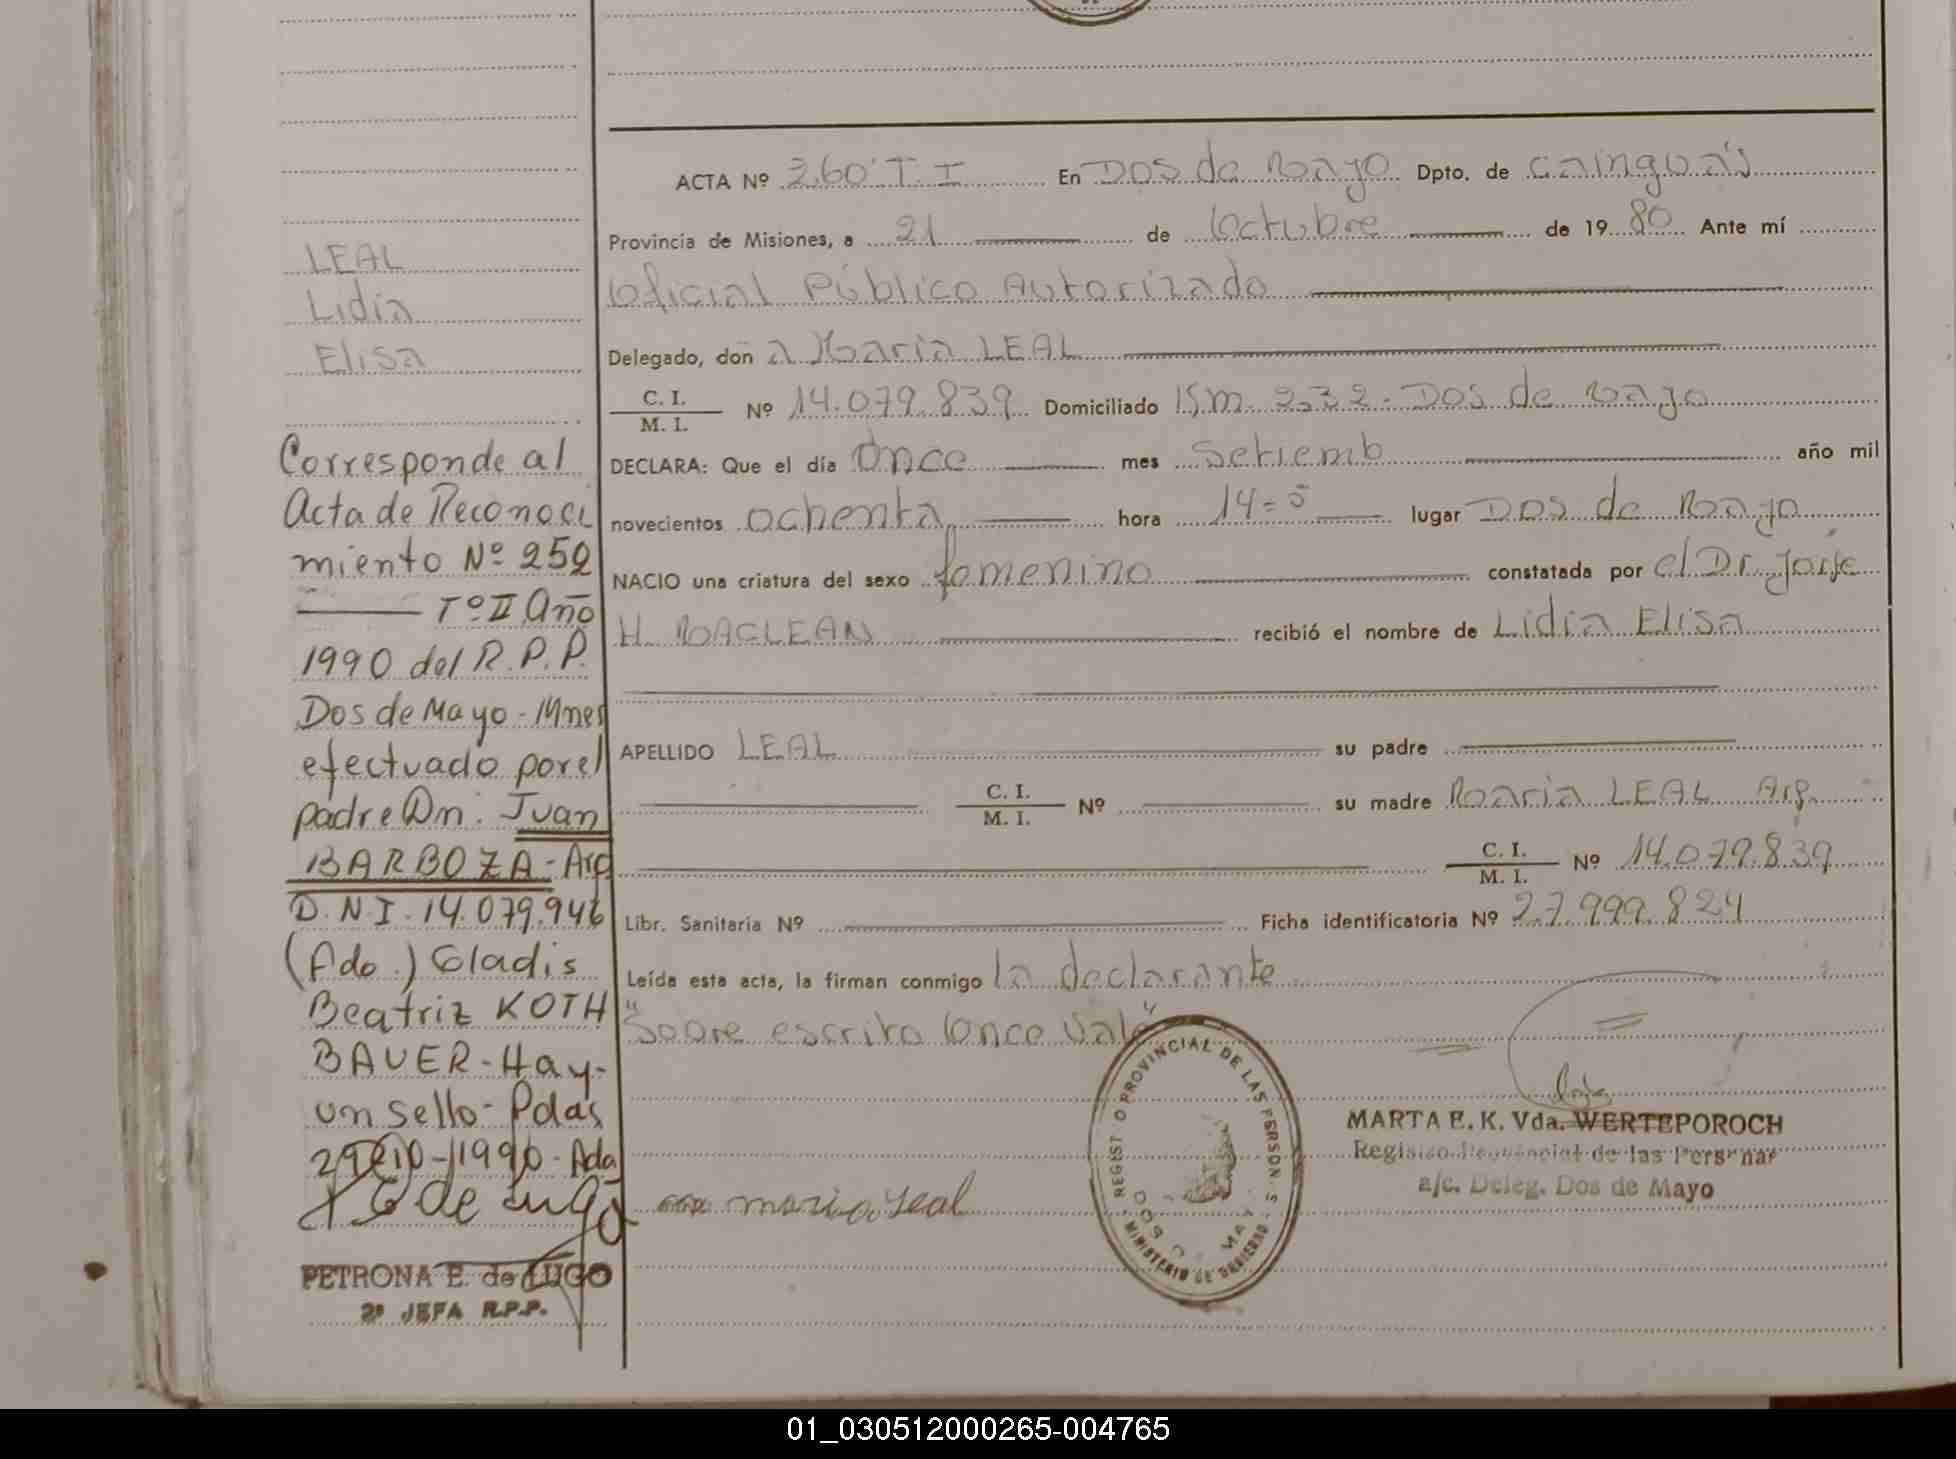 LEAL
Lidia
Elisa
Corresponde al
Acta de Reconoci
miento Nº 252
Tº II Año
1990 del R.P.P.
Dos de Mayo - Mnes
efectuado por el
padre Dn. Juan
BARBOZA - Arg
D.N.I. 14.079.946
(Fdo.) Gladis
Beatriz KOTH
BAUER - Hay -
un sello - Pdas
29-10-1990 - Ada
de Lugo
PETRONA E. de LUGO
2º JEFA R.P.P.
ACTA Nº 360 T. I En Dos de Mayo Dpto. de Cainguás
Provincia de Misiones, a 21 de Octubre de 1980 Ante mí
Oficial Público Autorizado
Delegado, don a María LEAL
C. I.
M. I. Nº 14.079.839 Domiciliado Km 232 - Dos de Mayo
DECLARA: Que el día Once mes Setiemb año mil
novecientos ochenta hora 14=5 lugar Dos de Mayo
NACIO una criatura del sexo femenino constatada por el Dr. Jorje
H. MACLEAN recibió el nombre de Lidia Elisa
APELLIDO LEAL su padre
C. I.
M. I. Nº su madre María LEAL Arg.
C. I.
M. I. Nº 14.079.839
Libr. Sanitaria Nº Ficha identificatoria Nº 27.999.824
Leída esta acta, la firman conmigo la declarante
"Sobre escrito Once Vale"
REGIST O PROVINCIAL DE LAS PERSON S
MINISTERIO DE GOBIERNO
DOS D MAY
MARTA E. K. Vda. WERTEPOROCH
Registro Provincial de las Personas
a/c. Deleg. Dos de Mayo
maria leal
01_030512000265-004765